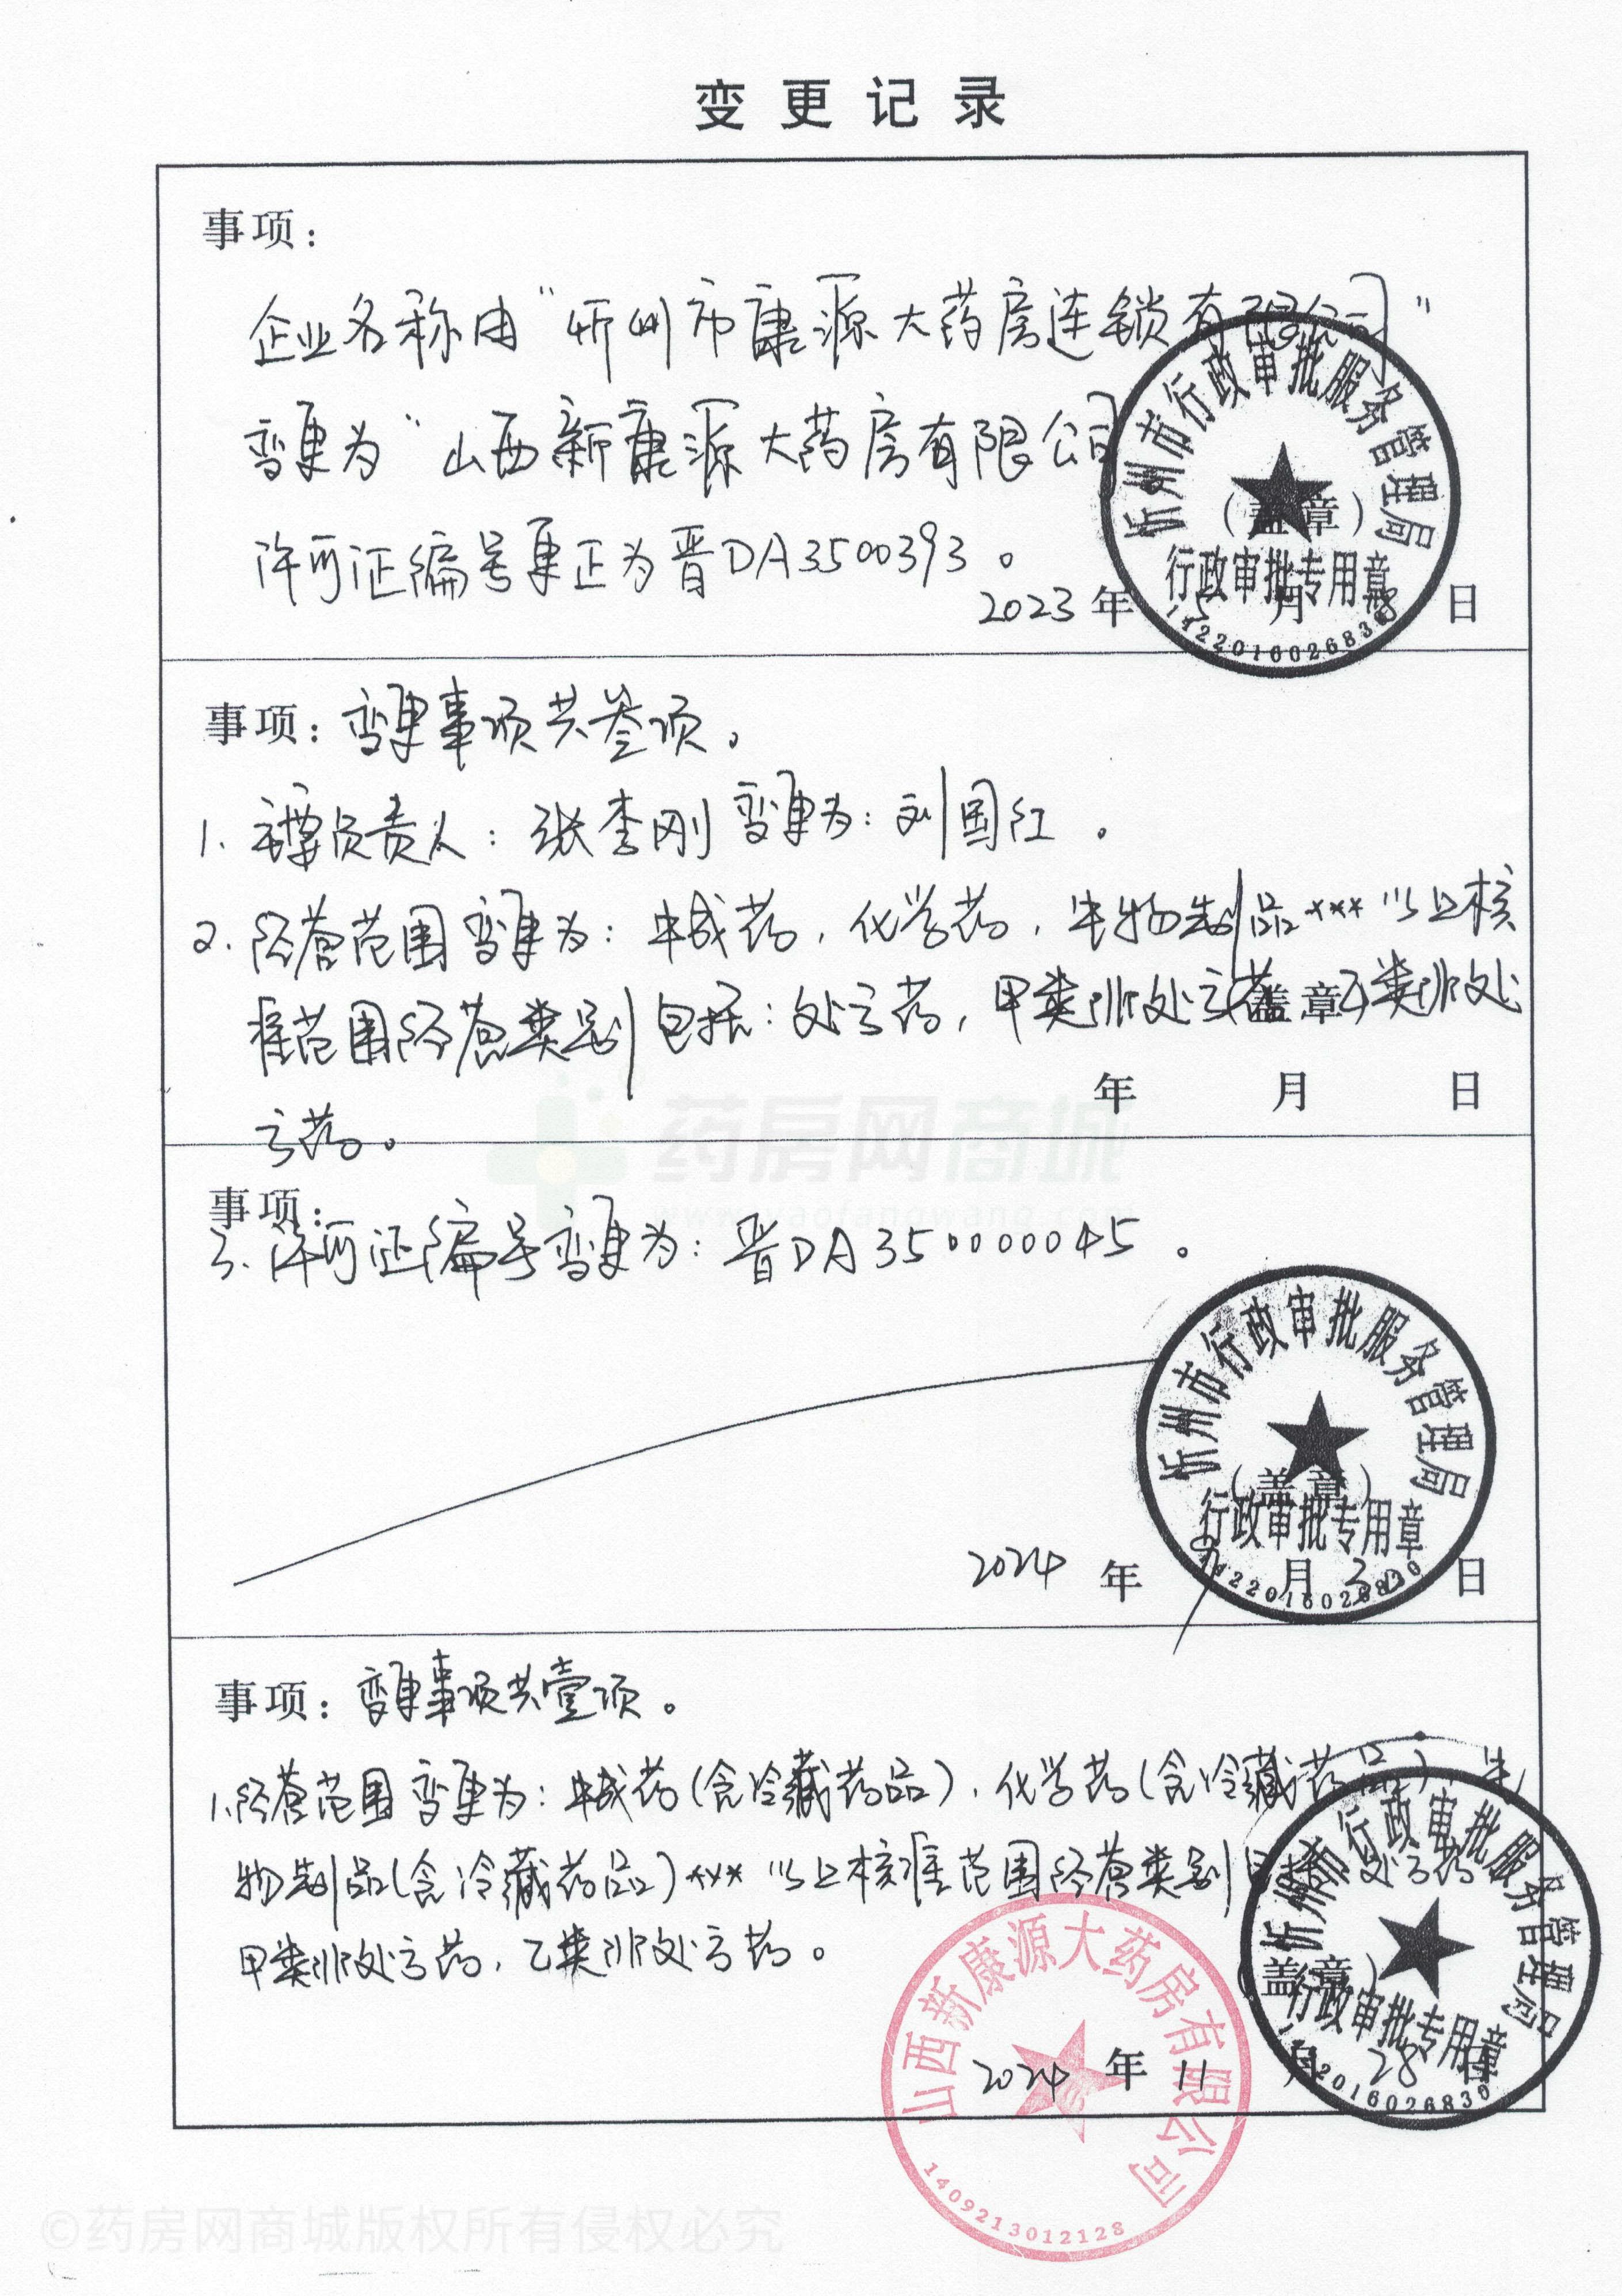 变更记录
事项：
企业名称由“忻州市康源大药房连锁有限公司”
变更为“山西新康源大药房有限公司
许可证编号更正为晋DA3500393。
（盖章）
2023年5月8日
忻州市行政审批服务管理局
行政审批专用章
事项：变更事项共叁项。
1. 主要负责人：张李刚变更为：刘国红。
2. 经营范围变更为：中成药，化学药，生物制品***以上核
准范围经营类别包括：处方药，甲类非处方药，乙类非处
（盖章）
年 月 日
方药。
药房网商城
www.yaofangwang.com
事项：
3. 许可证编号变更为：晋DA350000045。
忻州市行政审批服务管理局
（盖章）
行政审批专用章
2024年9月30日
事项：变更事项共壹项。
1.经营范围变更为：中成药(含冷藏药品)，化学药(含冷藏药品)，生
物制品(含冷藏药品)***以上核准范围经营类别包括：处方药
甲类非处方药，乙类非处方药。
忻州市行政审批服务管理局
（盖章）
行政审批专用章
山西新康源大药房有限公司
2024年11月28日
1409213012128
©药房网商城版权所有侵权必究